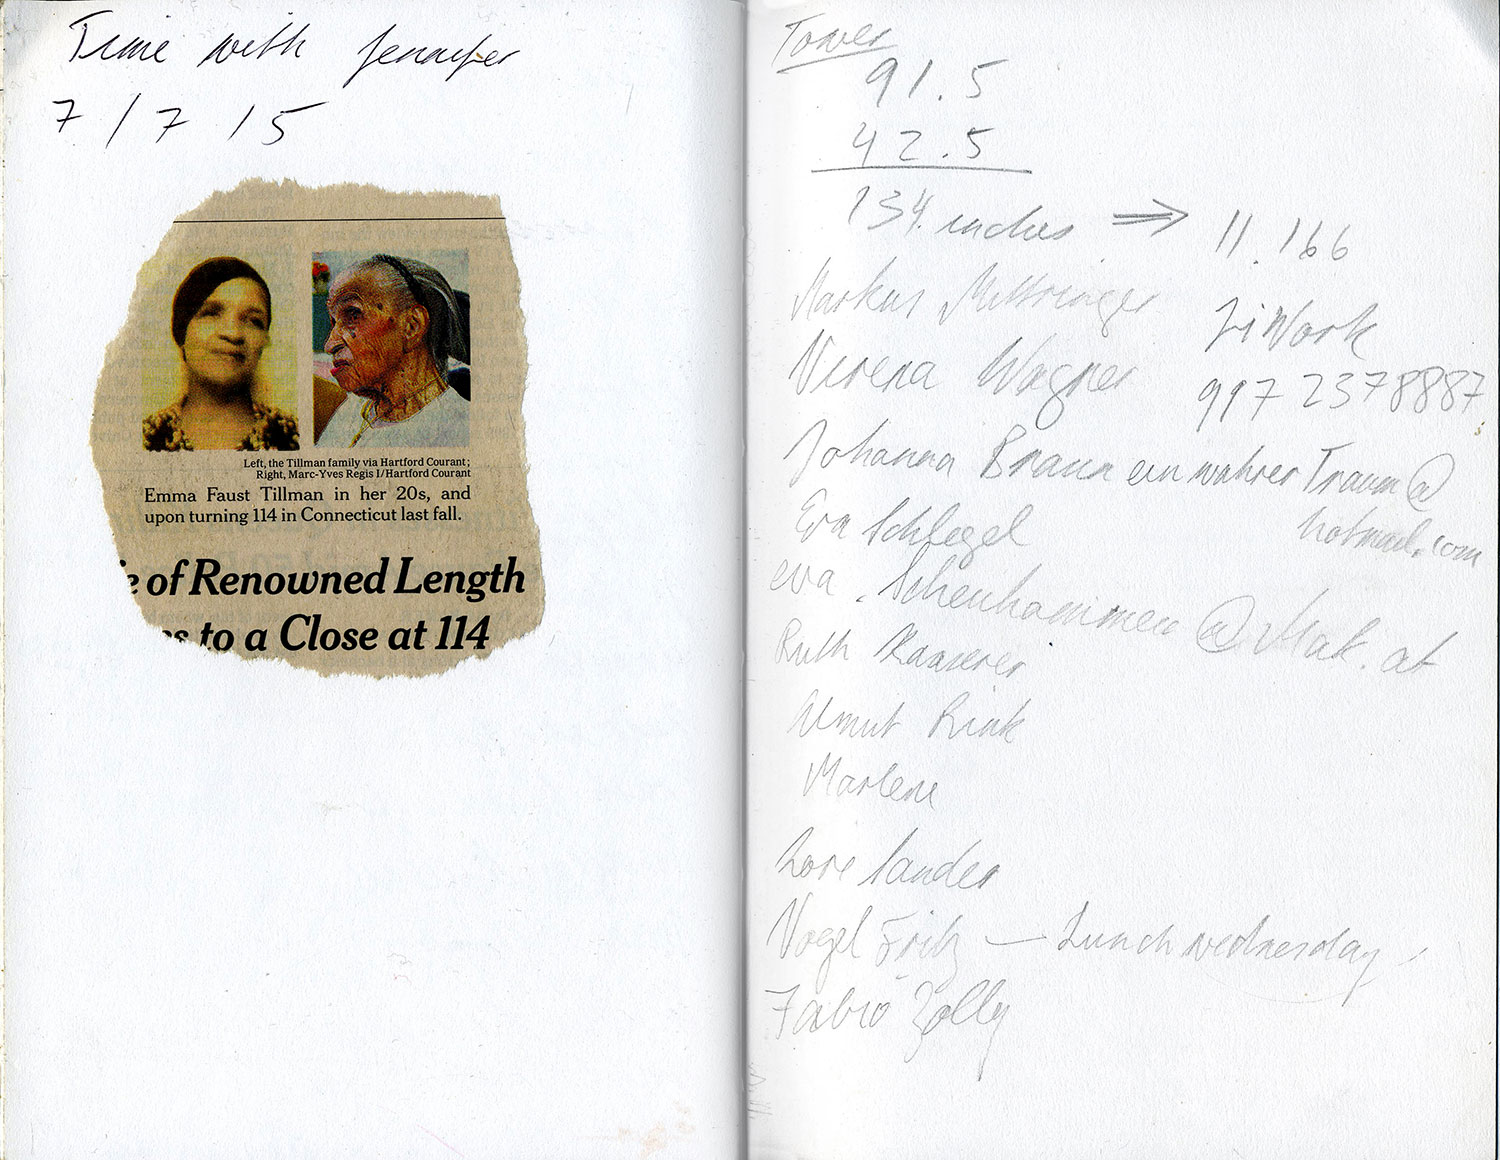 Time with Jennifer
7/7 15
Left, the Tillman family via Hartford Courant;
Right, Marc-Yves Regis I/Hartford Courant
Emma Faust Tillman in her 20s, and
upon turning 114 in Connecticut last fall.
of Renowned Length
to a Close at 114
Tower
91.5
42.5
134. inches ⇒ 11.166
Markus Mittringer
Work
Verena Wagner
917 2378887
Johanna Braun ein wahrer Traum@
hotmail.com
Eva Schlegel
eva. @Mak.at
Ruth
Umut
Marlene
Lore
Vogel Fritz — Lunch wednesday
Fabio Zolly